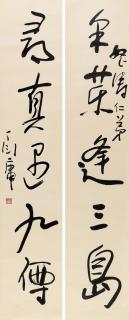 濤仁弟
采藥逢三島
尋真遇九僊
丁衍庸